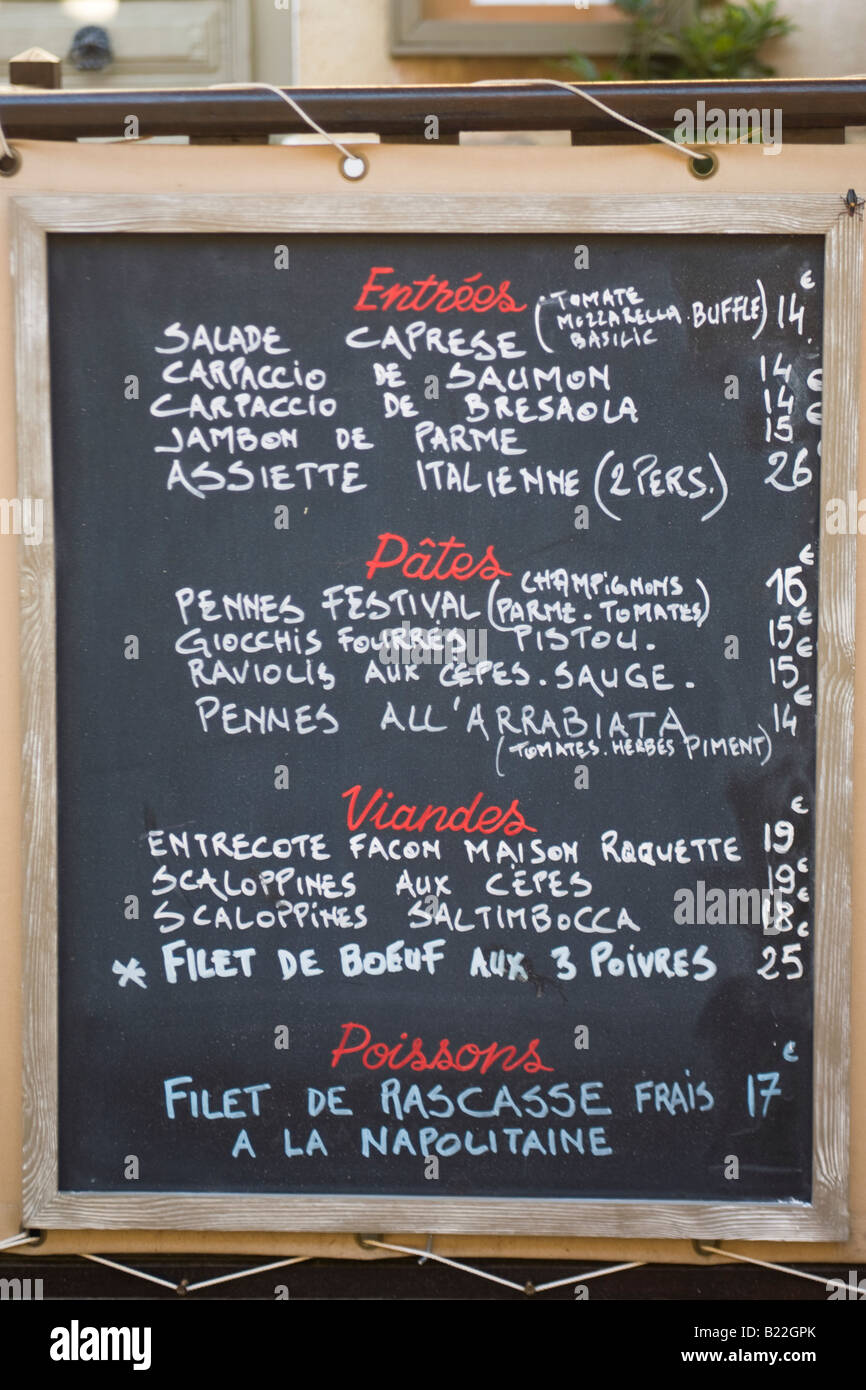 Entrées
SALADE CAPRESE (TOMATE MOZZARELLA.BUFFLE BASILIC) 14 €
CARPACCIO DE SAUMON 14 €
CARPACCIO DE BRESAOLA 14 €
JAMBON DE PARME 15 €
ASSIETTE ITALIENNE (2 PERS.) 26
Pâtes
PENNES FESTIVAL (CHAMPIGNONS PARME. TOMATES) 16 €
GIOCCHIS FOURRÉS PISTOU. 15 €
RAVIOLIS AUX CÈPES. SAUGE. 15 €
PENNES ALL'ARRABIATA 14 €
(TOMATES. HERBES PIMENT)
Viandes
ENTRECOTE FACON MAISON ROQUETTE 19 €
SCALOPPINES AUX CÈPES 19 €
SCALOPPINES SALTIMBOCCA 18 €
* FILET DE BOEUF AUX 3 POIVRES 25 €
Poissons
FILET DE RASCASSE FRAIS 17 €
A LA NAPOLITAINE
alamy
Image ID: B22GPK
www.alamy.com